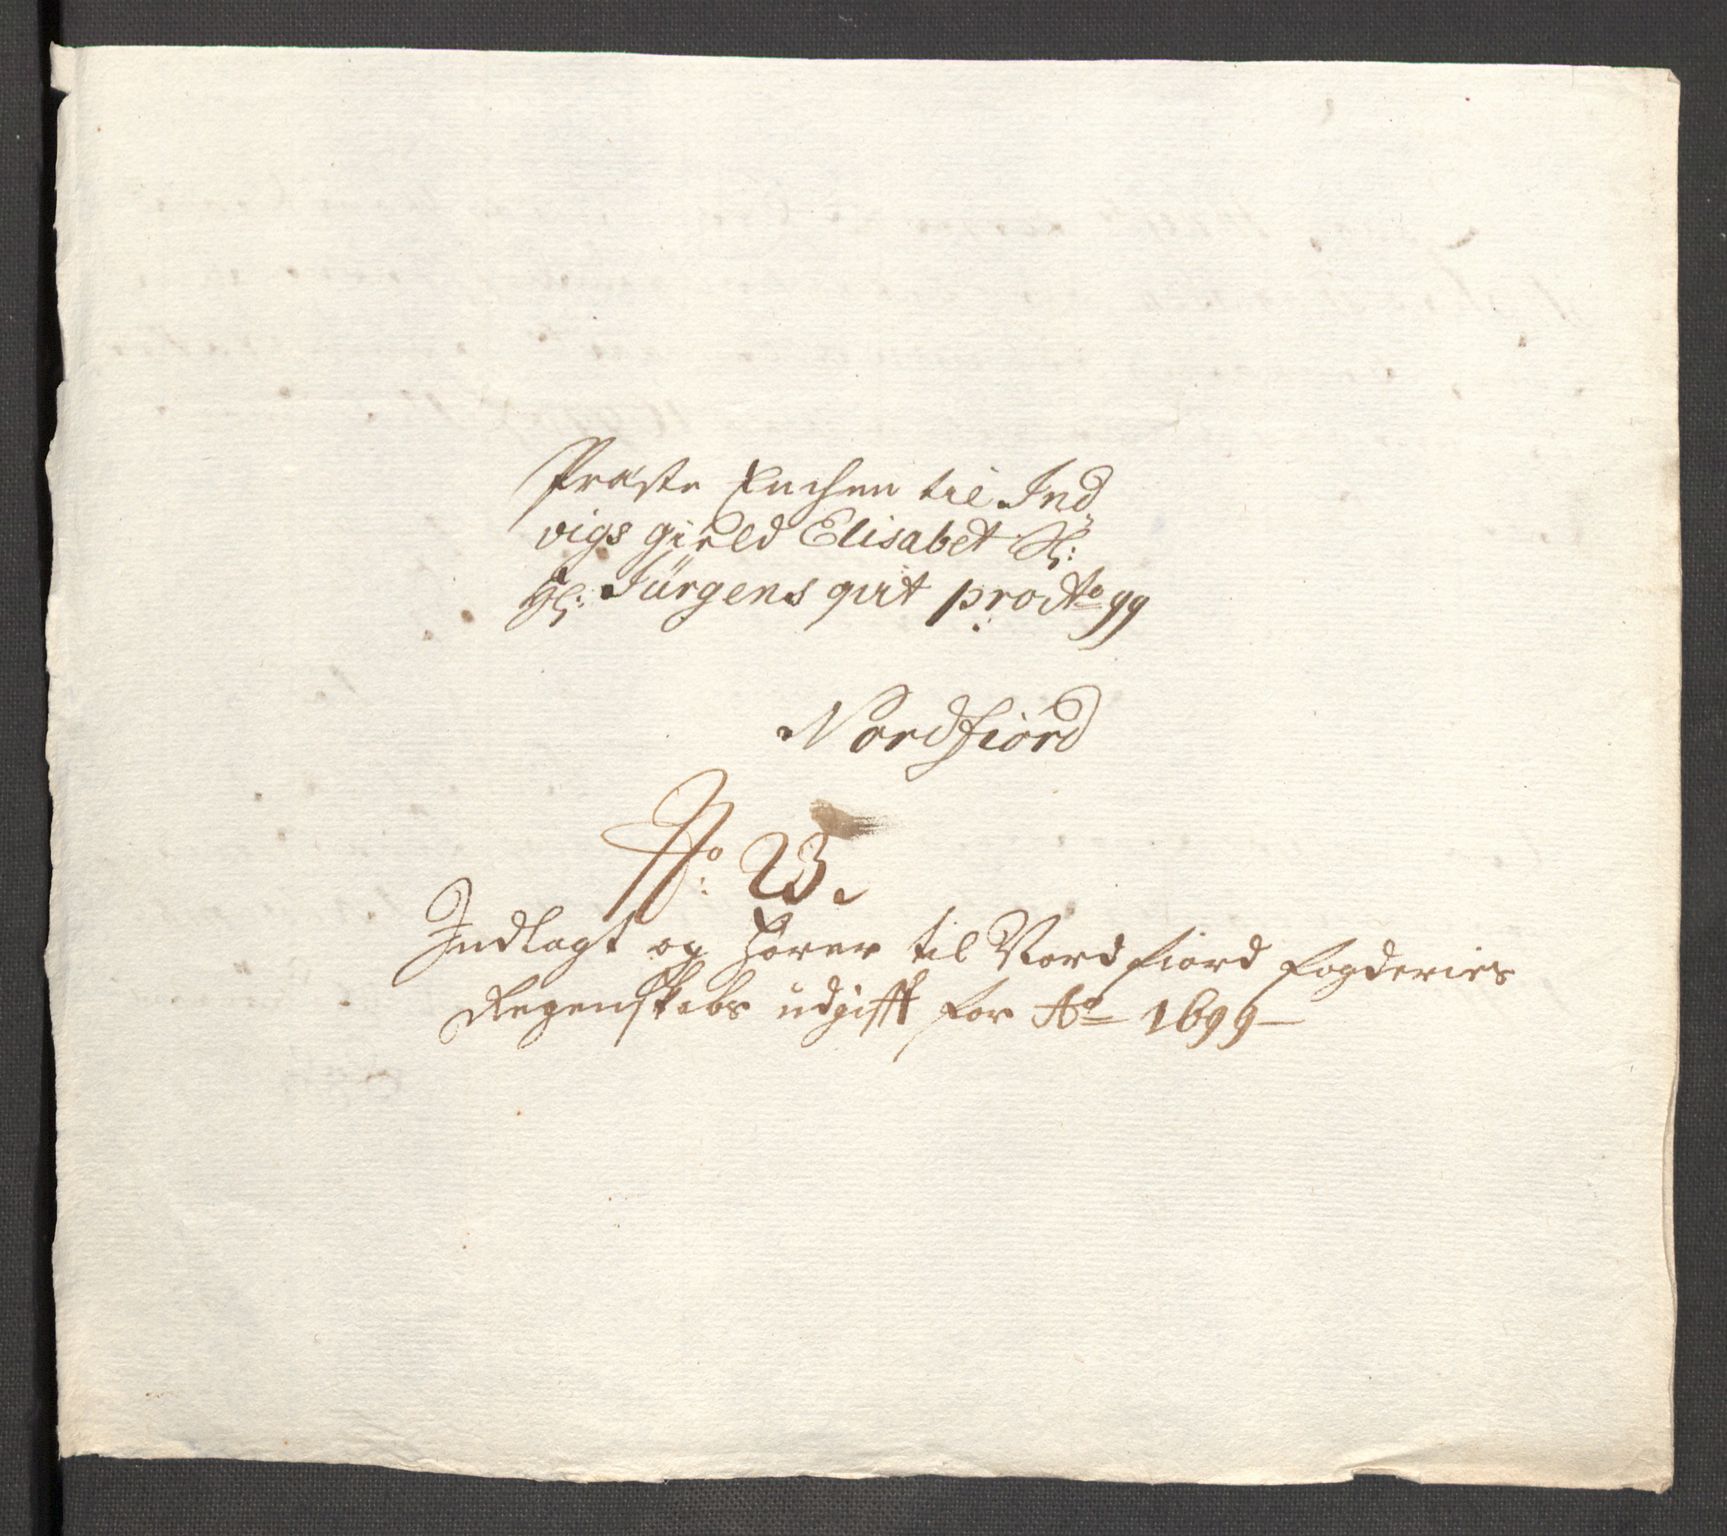 Præste Enchen til Ind,,
vigs gield Elisabet Sl:
Hl: Jürgens qvit pro Ao 99
Nordfiord
No: 23.
Indlagt og hører til Nordfiord fogderies
Regenskabs üdgifft for Ao 1699